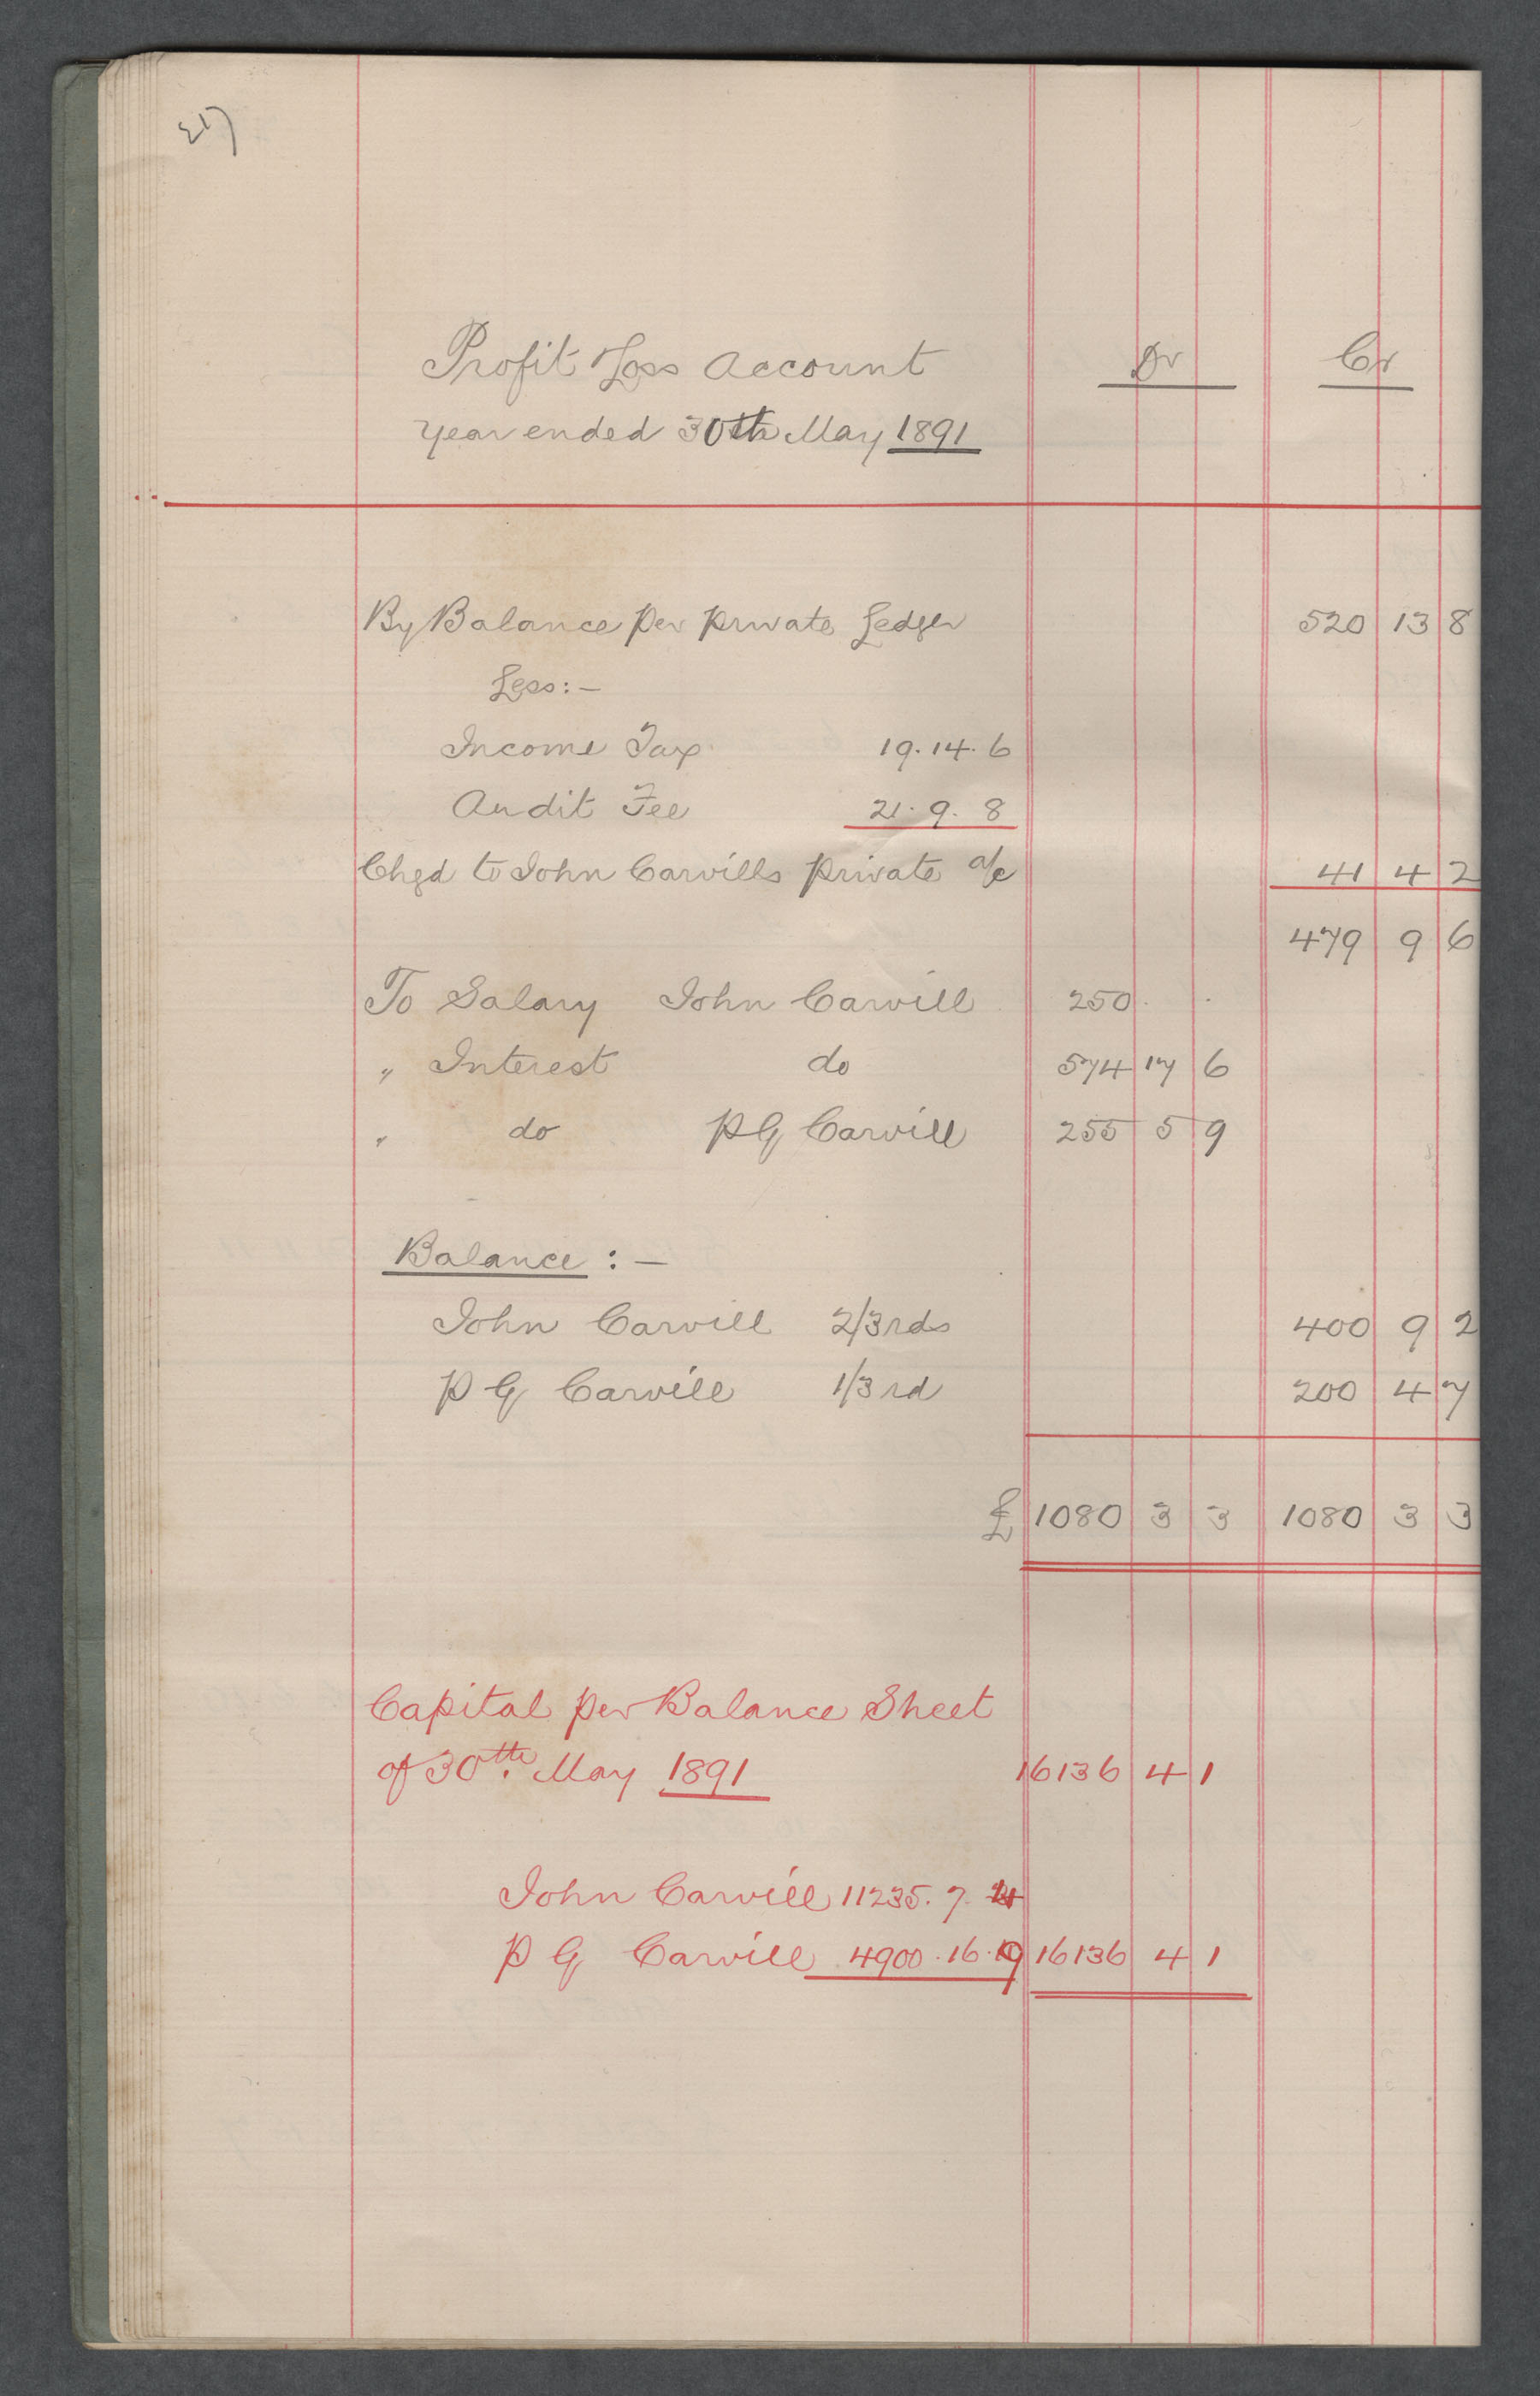 21)
Profit & Loss Account Dr Cr
year ended 30th May 1891
By Balance per private Ledger 520 13 8
Less:-
Income Tax 19.14.6
Audit Fee 21.9.8
Chgd to John Carvills private a/c 41 4 2
479 9 6
To Salary John Carvill 250 . .
" Interest do 574 17 6
" do PG Carvill 255 5 9
Balance :-
John Carvill 2/3rds 400 9 2
P G Carvill 1/3rd 200 4 7
£ 1080 3 3 1080 3 3
Capital per Balance Sheet
of 30th. May 1891 16136 4 1
John Carvill 11235.7.4
P G Carvill 4900.16.9 16136 4 1